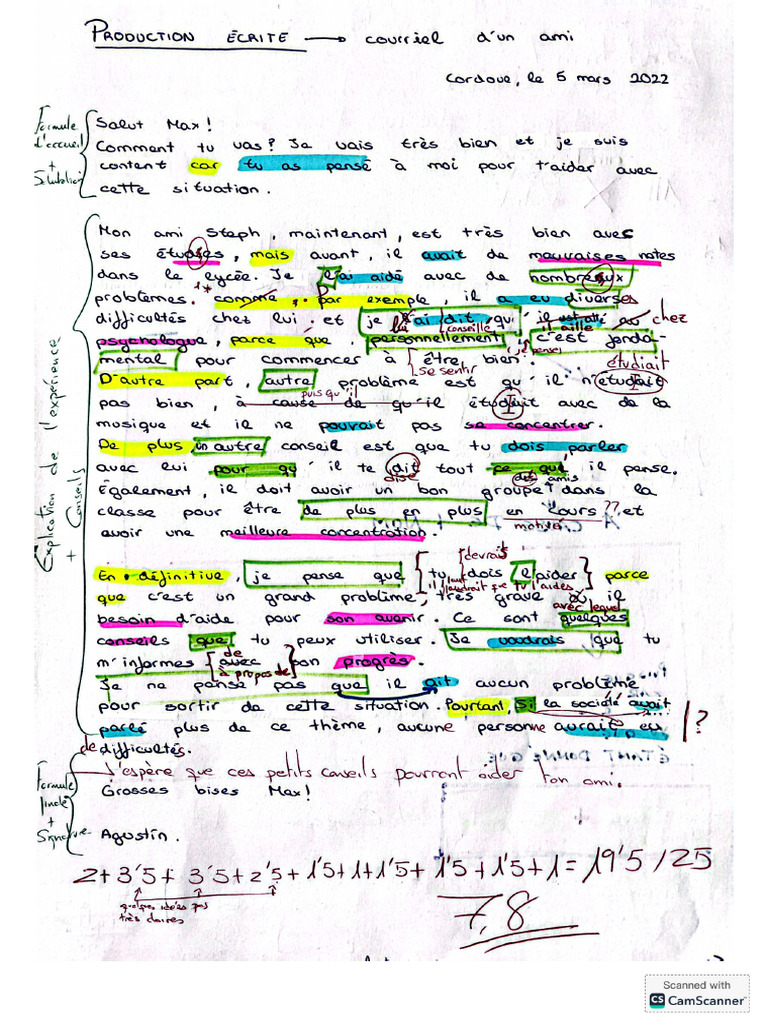 PRODUCTION ÉCRITE → courriel d'un ami
Cordoue, le 5 mars 2022
Formule
d'accueil
+
Salut Max!
Comment tu vas? Je vais très bien et je suis
content car tu as pensé à moi pour t'aider avec
cette situation.
Explication de l'expérience
+ Conseils
Mon ami Steph, maintenant, est très bien avec
ses études, mais avant, il avait de mauvaises notes
dans le lycée. Je l'ai aidé avec de nombreux
problèmes. comme, par exemple, il a eu diverses
difficultés chez lui et je lui ai dit qu'il chez
conseillé aille
psychologue, parce que personnellement c'est fonda-
(je pense)
mental pour commencer à être bien.
se sentir étudiait
D'autre part, autre problème est qu'il n'étudiait
puisqu'il
pas bien, à cause de qu'il étudiait avec de la
musique et il ne pouvait pas se concentrer.
De plus, un autre conseil est que tu dois parler
avec lui pour qu'il te dit tout ce que il pense.
dise des amis
Également, il doit avoir un bon groupe dans la
classe pour être de plus en plus en cours ?? et
motivé
avoir une meilleure concentration.
devrais
En définitive, je pense que tu dois l'aider parce
il faut
il faudrait que tu l'aides
que c'est un grand problème, très grave où il
avec lequel
besoin d'aide pour son avenir. Ce sont quelques
conseils que tu peux utiliser. Je voudrais que tu
m'informes avec son progrès.
de
à propos de
Je ne pense pas que il ait aucun problème
pour sortir de cette situation. Pourtant, si la société avait
parlé plus de ce thème, aucune personne aurait eu ?
de difficultés.
J'espère que ces petits conseils pourront aider ton ami.
Formule
finale
+
Signature
Grosses bises Max!
Agustín.
2+3'5+3'5+2'5+1'5+1+1'5+1'5+1'5+1=19'5/25
quelques idées pas
très claires
7,8
Scanned with
CS CamScanner